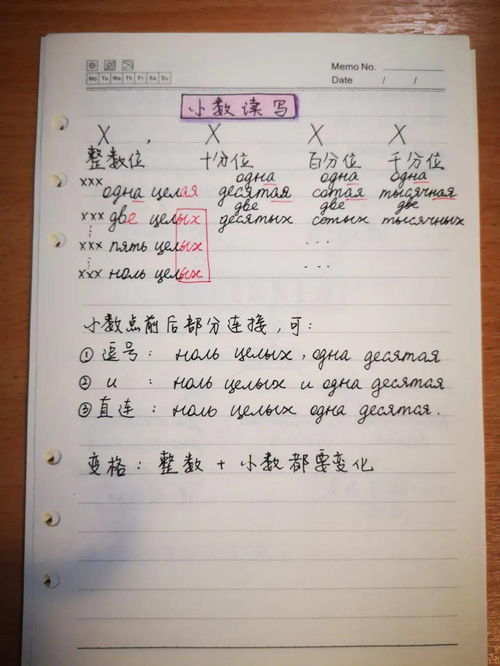 Memo No.
Mo Tu We Th Fr Sa Su
Date / /
小数读写
X , X X X
整数位 十分位 百分位 千分位
одна одна одна
xxx одна целая десятая сотая тысячная
две две две
xxx две целых десятых сотых тысячных
xxx пять целых ...
xxx ноль целых ...
小数点前后部分连接,可:
① 逗号: ноль целых, одна десятая
② и : ноль целых и одна десятая
③ 直连: ноль целых одна десятая.
变格: 整数 + 小数都要变化